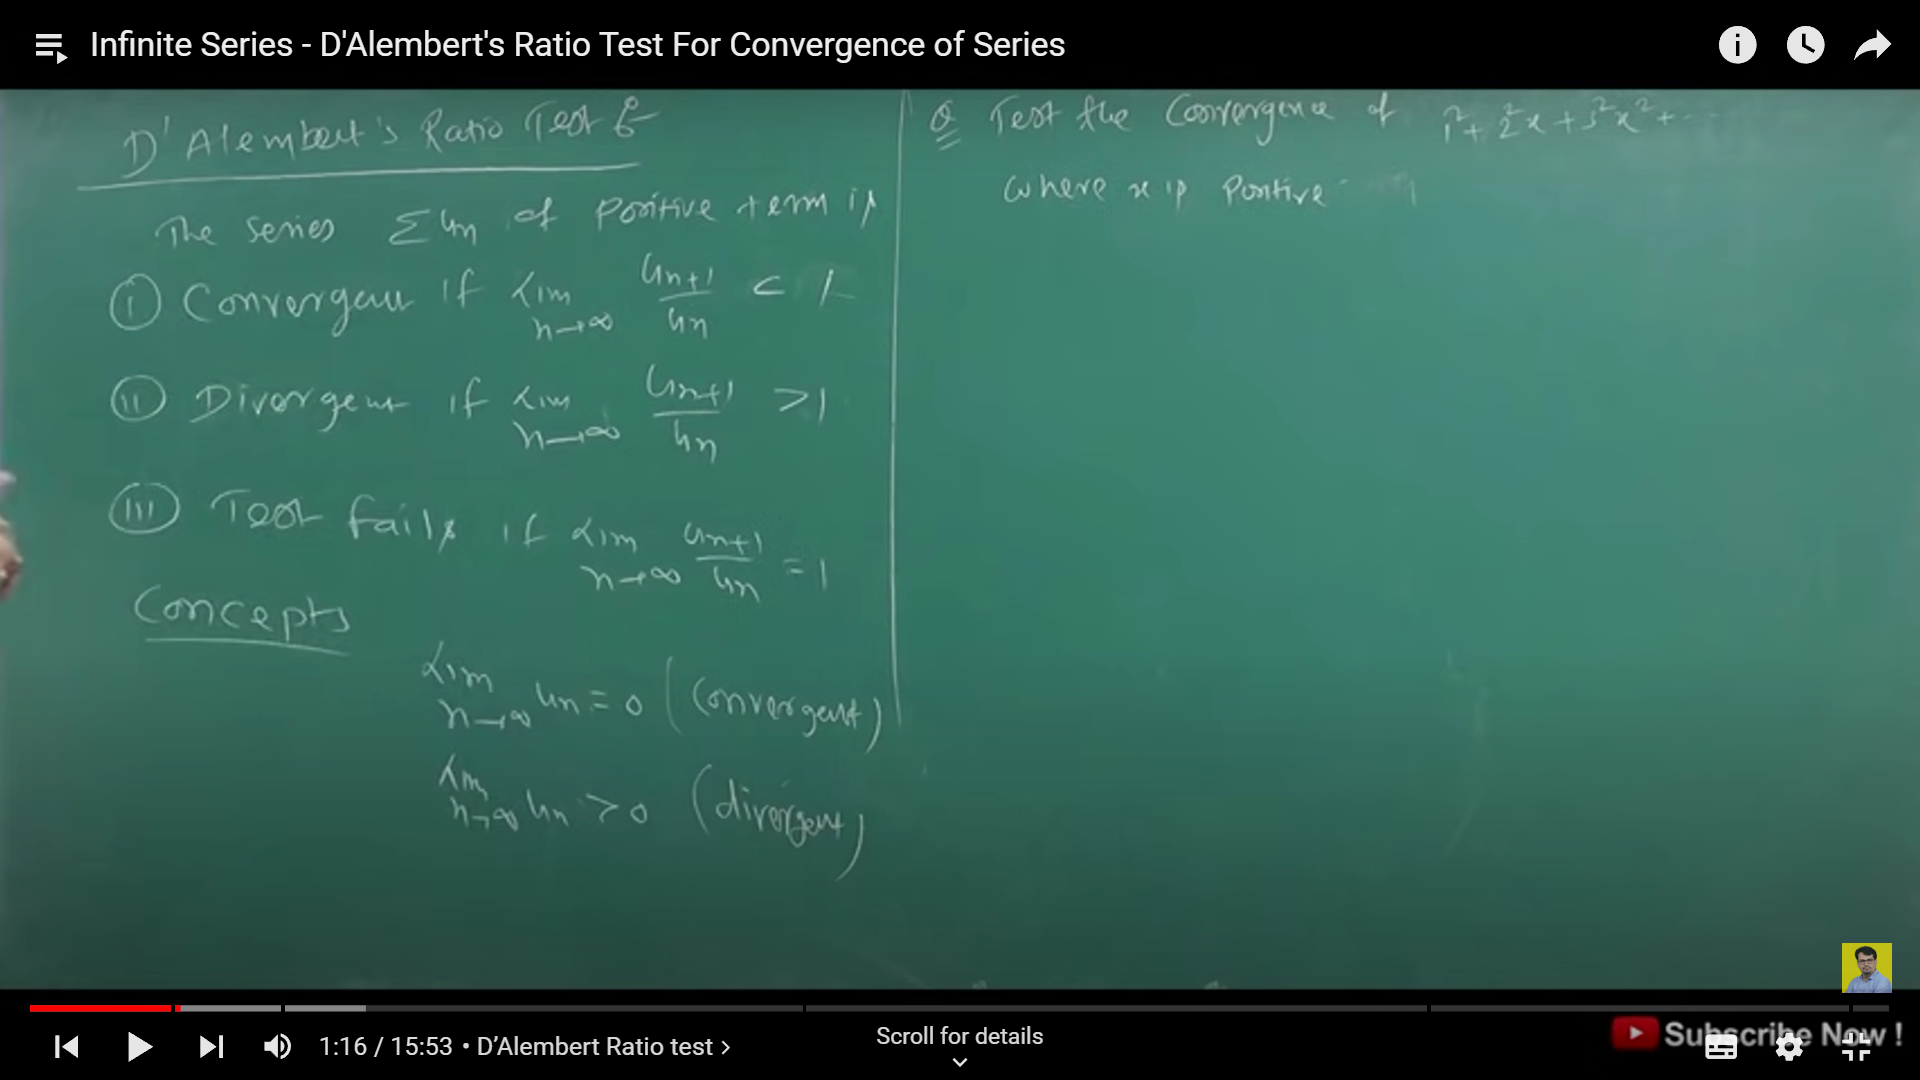 Infinite Series - D'Alembert's Ratio Test For Convergence of Series
D'Alembert's Ratio Test :-
The series Σun of positive term is
(i) Convergent if Lim n→∞ un+1/un < 1
(ii) Divergent if Lim n→∞ un+1/un > 1
(iii) Test fails if Lim n→∞ un+1/un = 1
Concepts
Lim n→∞ un = 0 (Convergent)
Lim n→∞ un > 0 (divergent)
Q Test the Convergence of 1²+2²x+3²x²+...
where x is Positive
1:16 / 15:53 • D’Alembert Ratio test
Scroll for details
Subscribe Now !